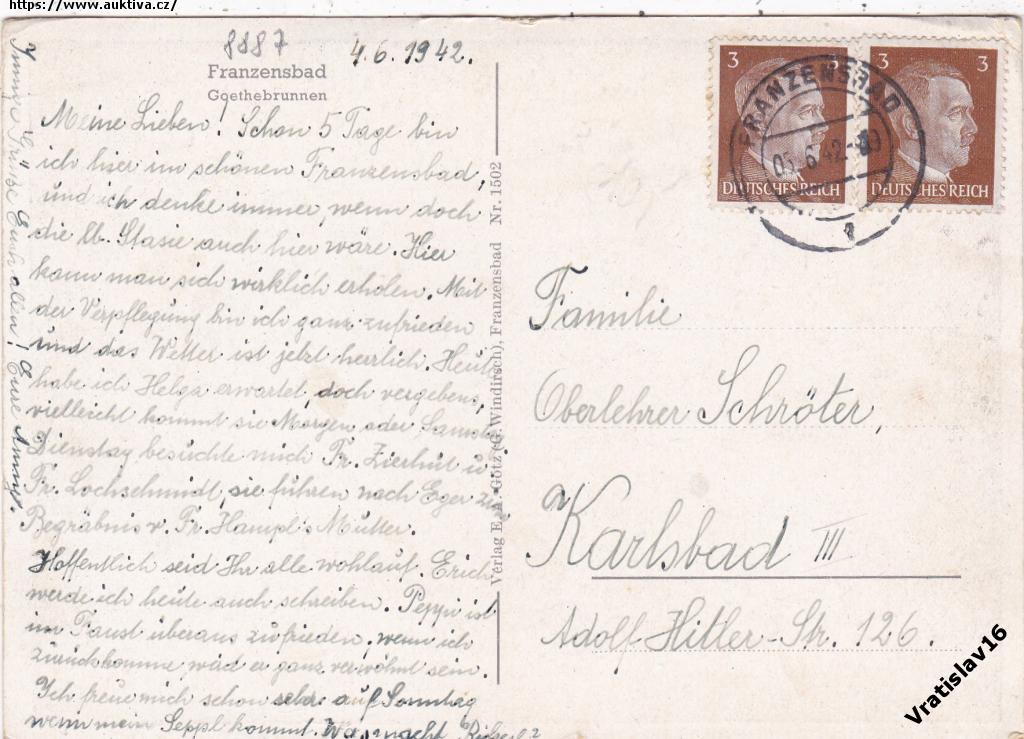 https://www.auktiva.cz/
8887
4.6.1942.
Franzensbad
Goethebrunnen
Meine Lieben! Schon 5 Tage bin
ich hier im schönen Franzensbad,
und ich denke immer wenn doch
die lb. Stasie auch hier wäre. Hier
kann man sich wirklich erholen. Mit
der Verpflegung bin ich ganz zufrieden
und das Wetter ist jetzt herrlich. Heute
habe ich Helga erwartet, doch vergebens,
vielleicht kommt sie Morgen oder Samstag
Dienstag besuchte mich Fr. Zierhut u.
Fr. Lochschmidt, sie führen nach Eger zum
Begräbnis v. Fr. Hampl's Mutter.
Hoffentlich seid Ihr alle wohlauf. Erich
werde ich heute auch schreiben. Peppi ist
im Faust überaus zufrieden, wenn ich
zurückkomme wird er ganz verwöhnt sein.
Ich freue mich schon sehr auf Sonntag
wenn mein Seppl kommt. Was macht
Innige Grüße Euch allen! Eure
Verlag E. A. Götz (G. Windirsch), Franzensbad Nr. 1502
3
3
3
DEUTSCHES REICH
DEUTSCHES REICH
FRANZENSBAD
Familie
Oberlehrer Schröter,
Karlsbad III
Adolf Hitler-Str. 126.
Vratislav16